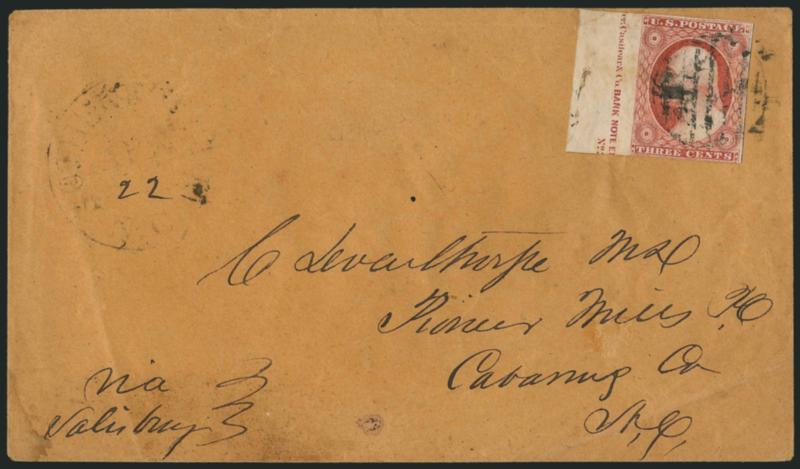 U.S. POSTAGE
THREE CENTS
Casilear & Co. BANK NOTE E
No.
22
C Leventhorpe Md
Pioneer Mills P.O
Cabarrus Co
N.C,
via
Salisbury